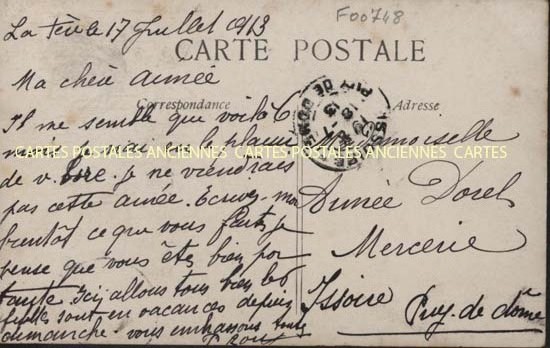 La Fère le 17 Juillet 1913
F00748
CARTE POSTALE
Ma chère Aimée
Correspondance
Adresse
Il me semble que voilà 6
mois je la plaisir
CARTES POSTALES ANCIENNES CARTES POSTALES ANCIENNES CARTES
de v. Je ne viendrais
pas cette année. Ecrivez-moi
bientôt ce que vous faites je
pense que vous êtes bien por
tante Ici allons tous bien les
filles sont en vacances depuis
dimanche. vous embrassons tous
Mademoiselle
Aimée Dorel
Mercerie
Issoire Puy-de-dôme
PUY DE DOME